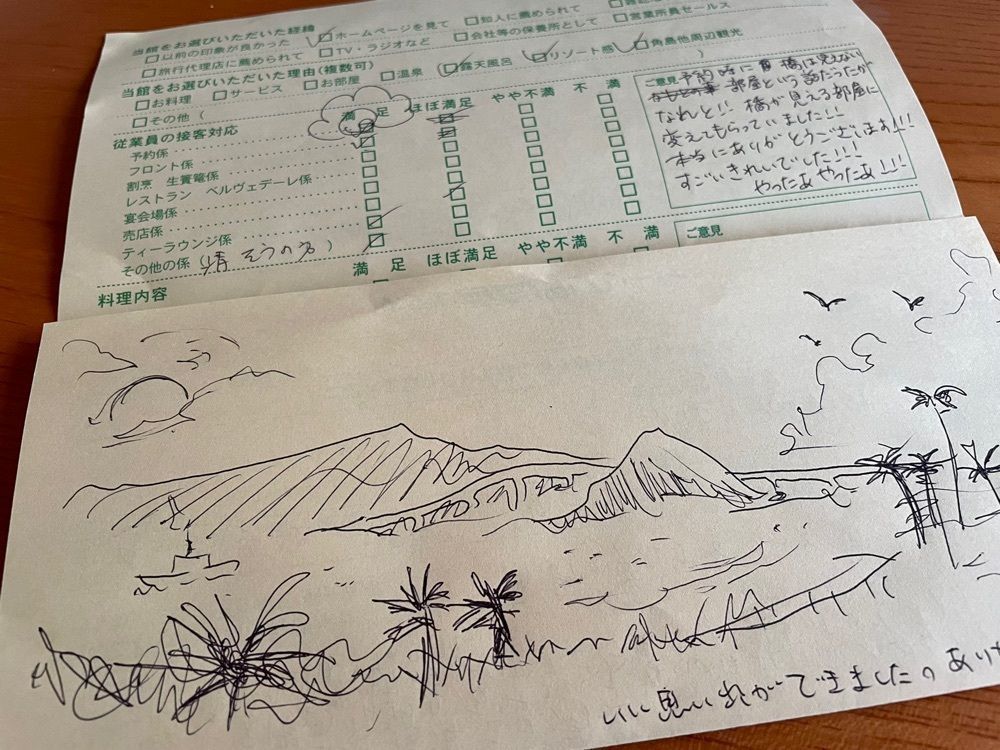 当館をお選びいただいた経緯
□以前の印象が良かった
☑ホームページを見て
□知人に薦められて
□旅行代理店に薦められて
□TV・ラジオなど
□会社等の保養所として
□営業所員セールス
当館をお選びいただいた理由(複数可)
□お料理
□サービス
□お部屋
□温泉
(☑露天風呂
☑リゾート感
☑角島他周辺観光
□その他(
)
満足
ほぼ満足
やや不満
不満
従業員の接客対応
予約係
フロント係
割烹 生簀篭係
レストラン ベルヴェデーレ係
宴会場係
売店係
ティーラウンジ係
その他の係(清そうの方)
ご意見
予約時に
橋は見えない
部屋という話だったが
なんと!! 橋が見える部屋に
変えてもらっていました!!
本当にありがとうございます!!!
すごいきれいでした!!!
やったあやったあ!!!
満足
ほぼ満足
やや不満
不満
ご意見
料理内容
いい思い出ができました。あり